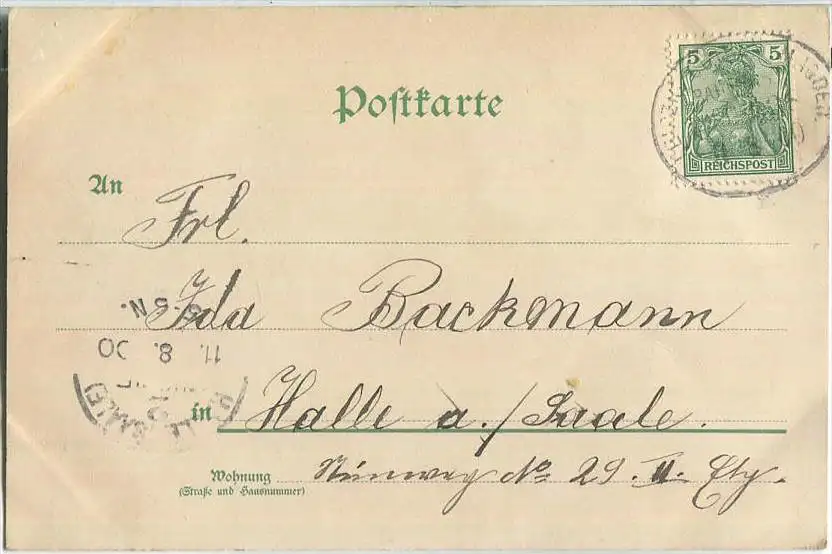 5 5
REICHSPOST
Postkarte
An
Frl.
Ida Backmann
5-8 N.
11. 8. 00
in Halle a./Saale.
HALLE (SAALE)
Wohnung No 29. II. Etg.
(Straße und Hausnummer)